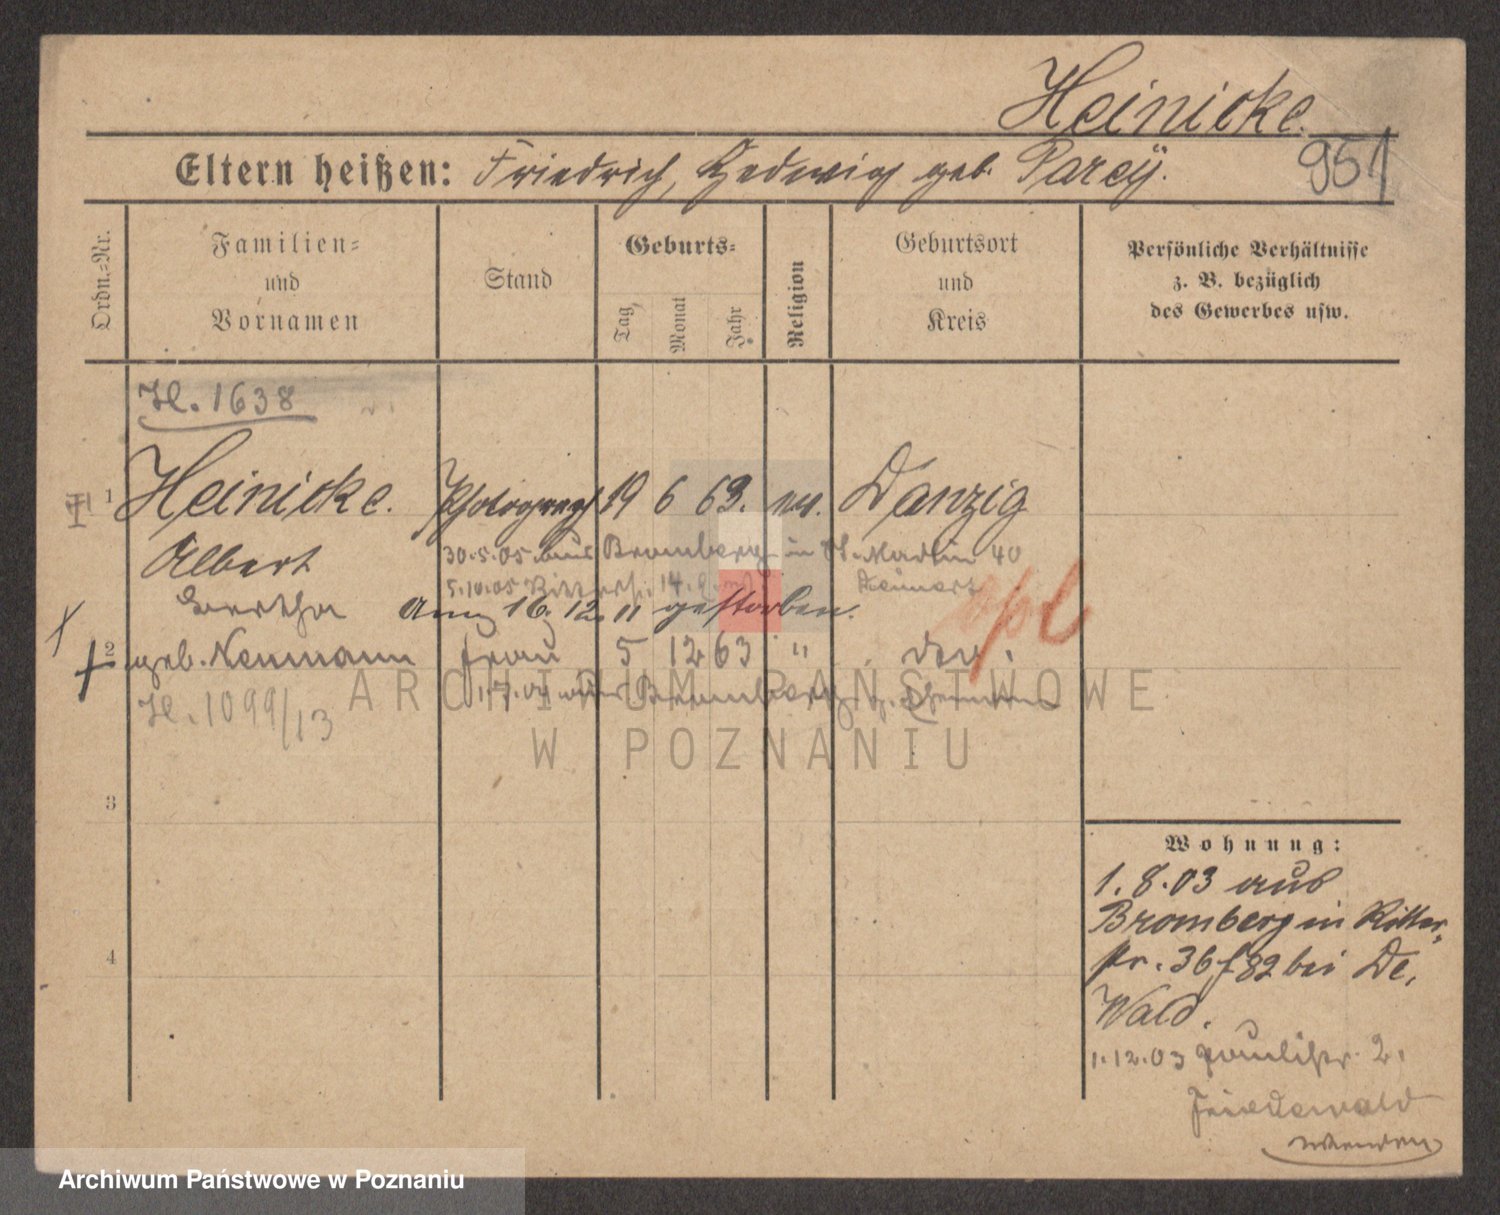 Heinicke.
951
Eltern heißen: Friedrich, Hedwig geb. Parey.
Ordn.-Nr.
Familien-
und
Vornamen
Stand
Geburts-
Tag
Monat
Jahr
Religion
Geburtsort
und
Kreis
Persönliche Verhältnisse
z. B. bezüglich
des Gewerbes usw.
H. 1638
1 Heinicke. Photograph 19 6 63. ev. Danzig
Albert
30.5.05 aus Bromberg in St. Martin 40
5.10.05 14.
Bertha am 16. 12. 11 gestorben.
2 geb. Neumann Frau 5 12 63 "
H. 1099/13
aus Bromberg
3
4
Wohnung:
1. 8. 03 aus
Bromberg in Ritter-
str. 36 f 82 bei De,
Wald.
1.12.03 Paulistr. 2.
Friedewald
wenden
ARCHIWUM PAŃSTWOWE
W POZNANIU
Archiwum Państwowe w Poznaniu